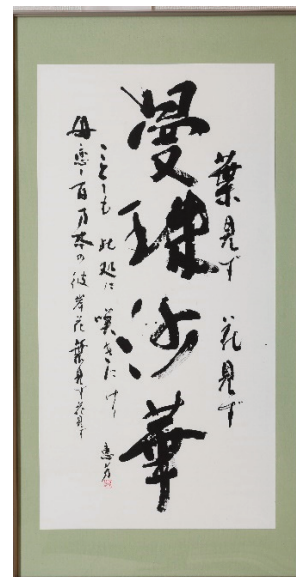 葉見ず 花見ず
曼珠沙華
ことしも 此処に 咲きにけり
母恋し 百万本の 彼岸花 葉見ず花見ず